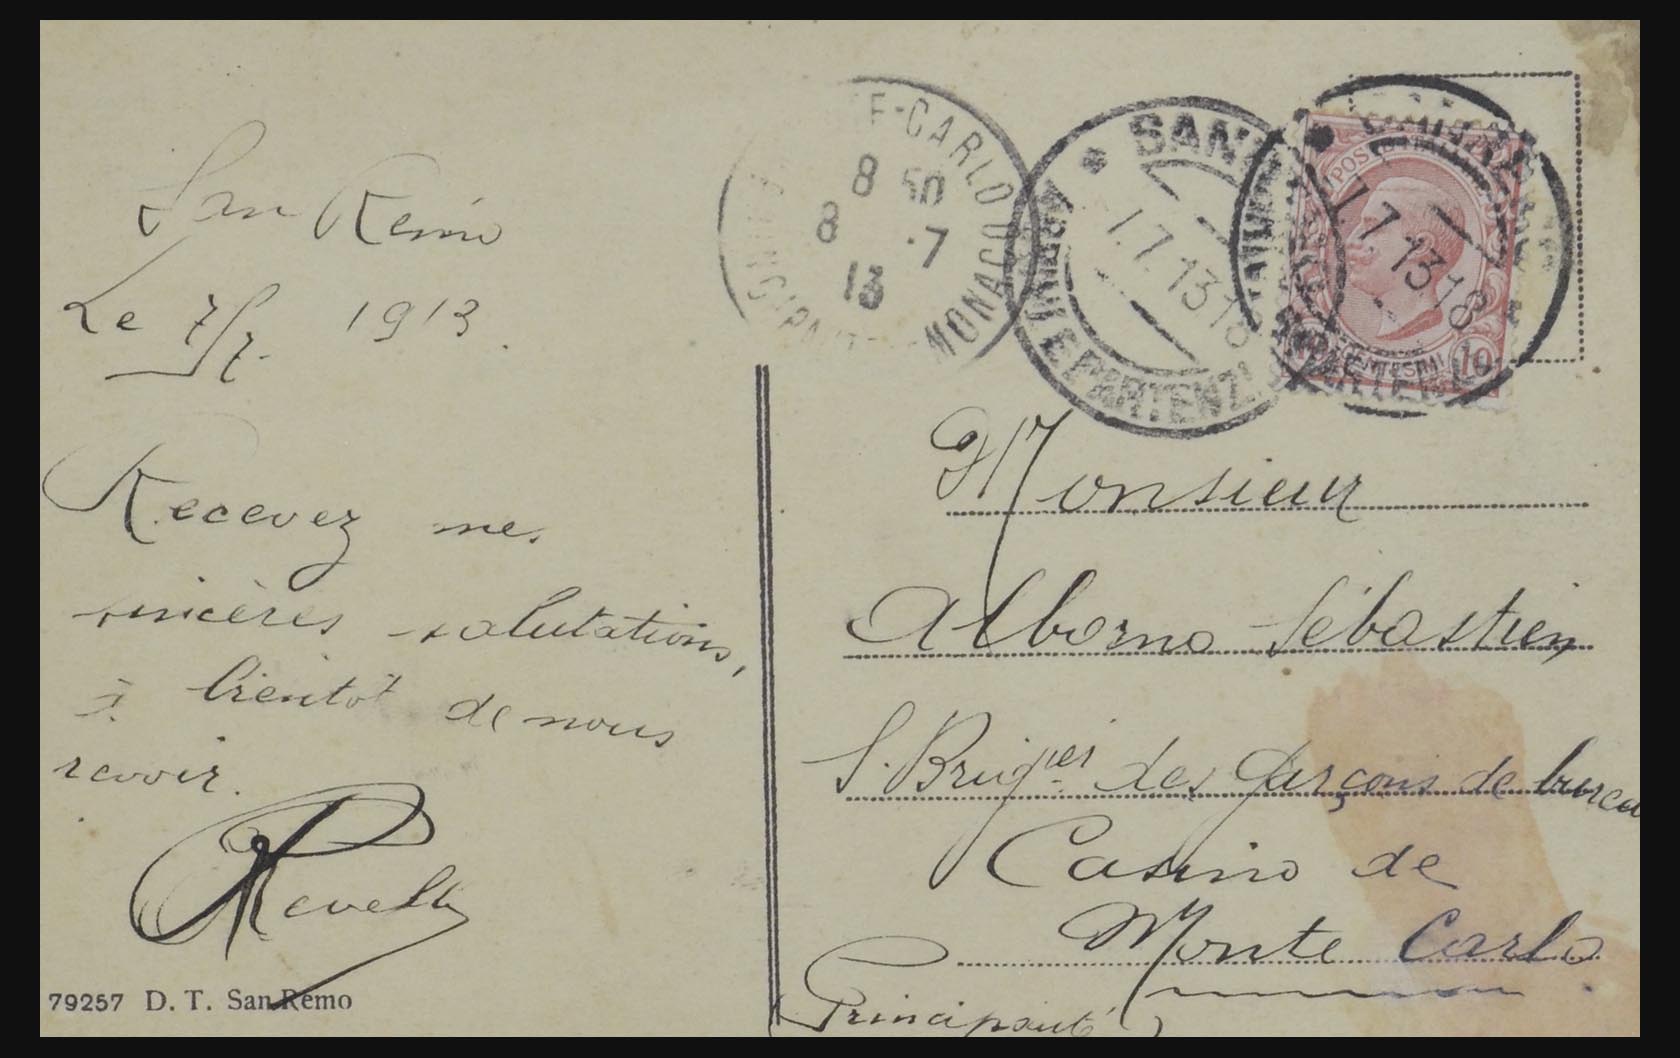 San Remo
Le 7/7. 1913.
Recevez mes
sincères salutations,
à bientôt de nous
revoir.
Revelli
79257 D. T. San Remo
E-CARLO
MONACO
8 50
8 .7
13
SAN
ARRIVI E PARTENZE
7.7.13.18
POSTE
7.7.13.18
CENTESIMI
10
Monsieur
Alborno Sébastien,
S. Brig.ier des garçons de bureau
Casino de
Monte Carlo
(Principauté)